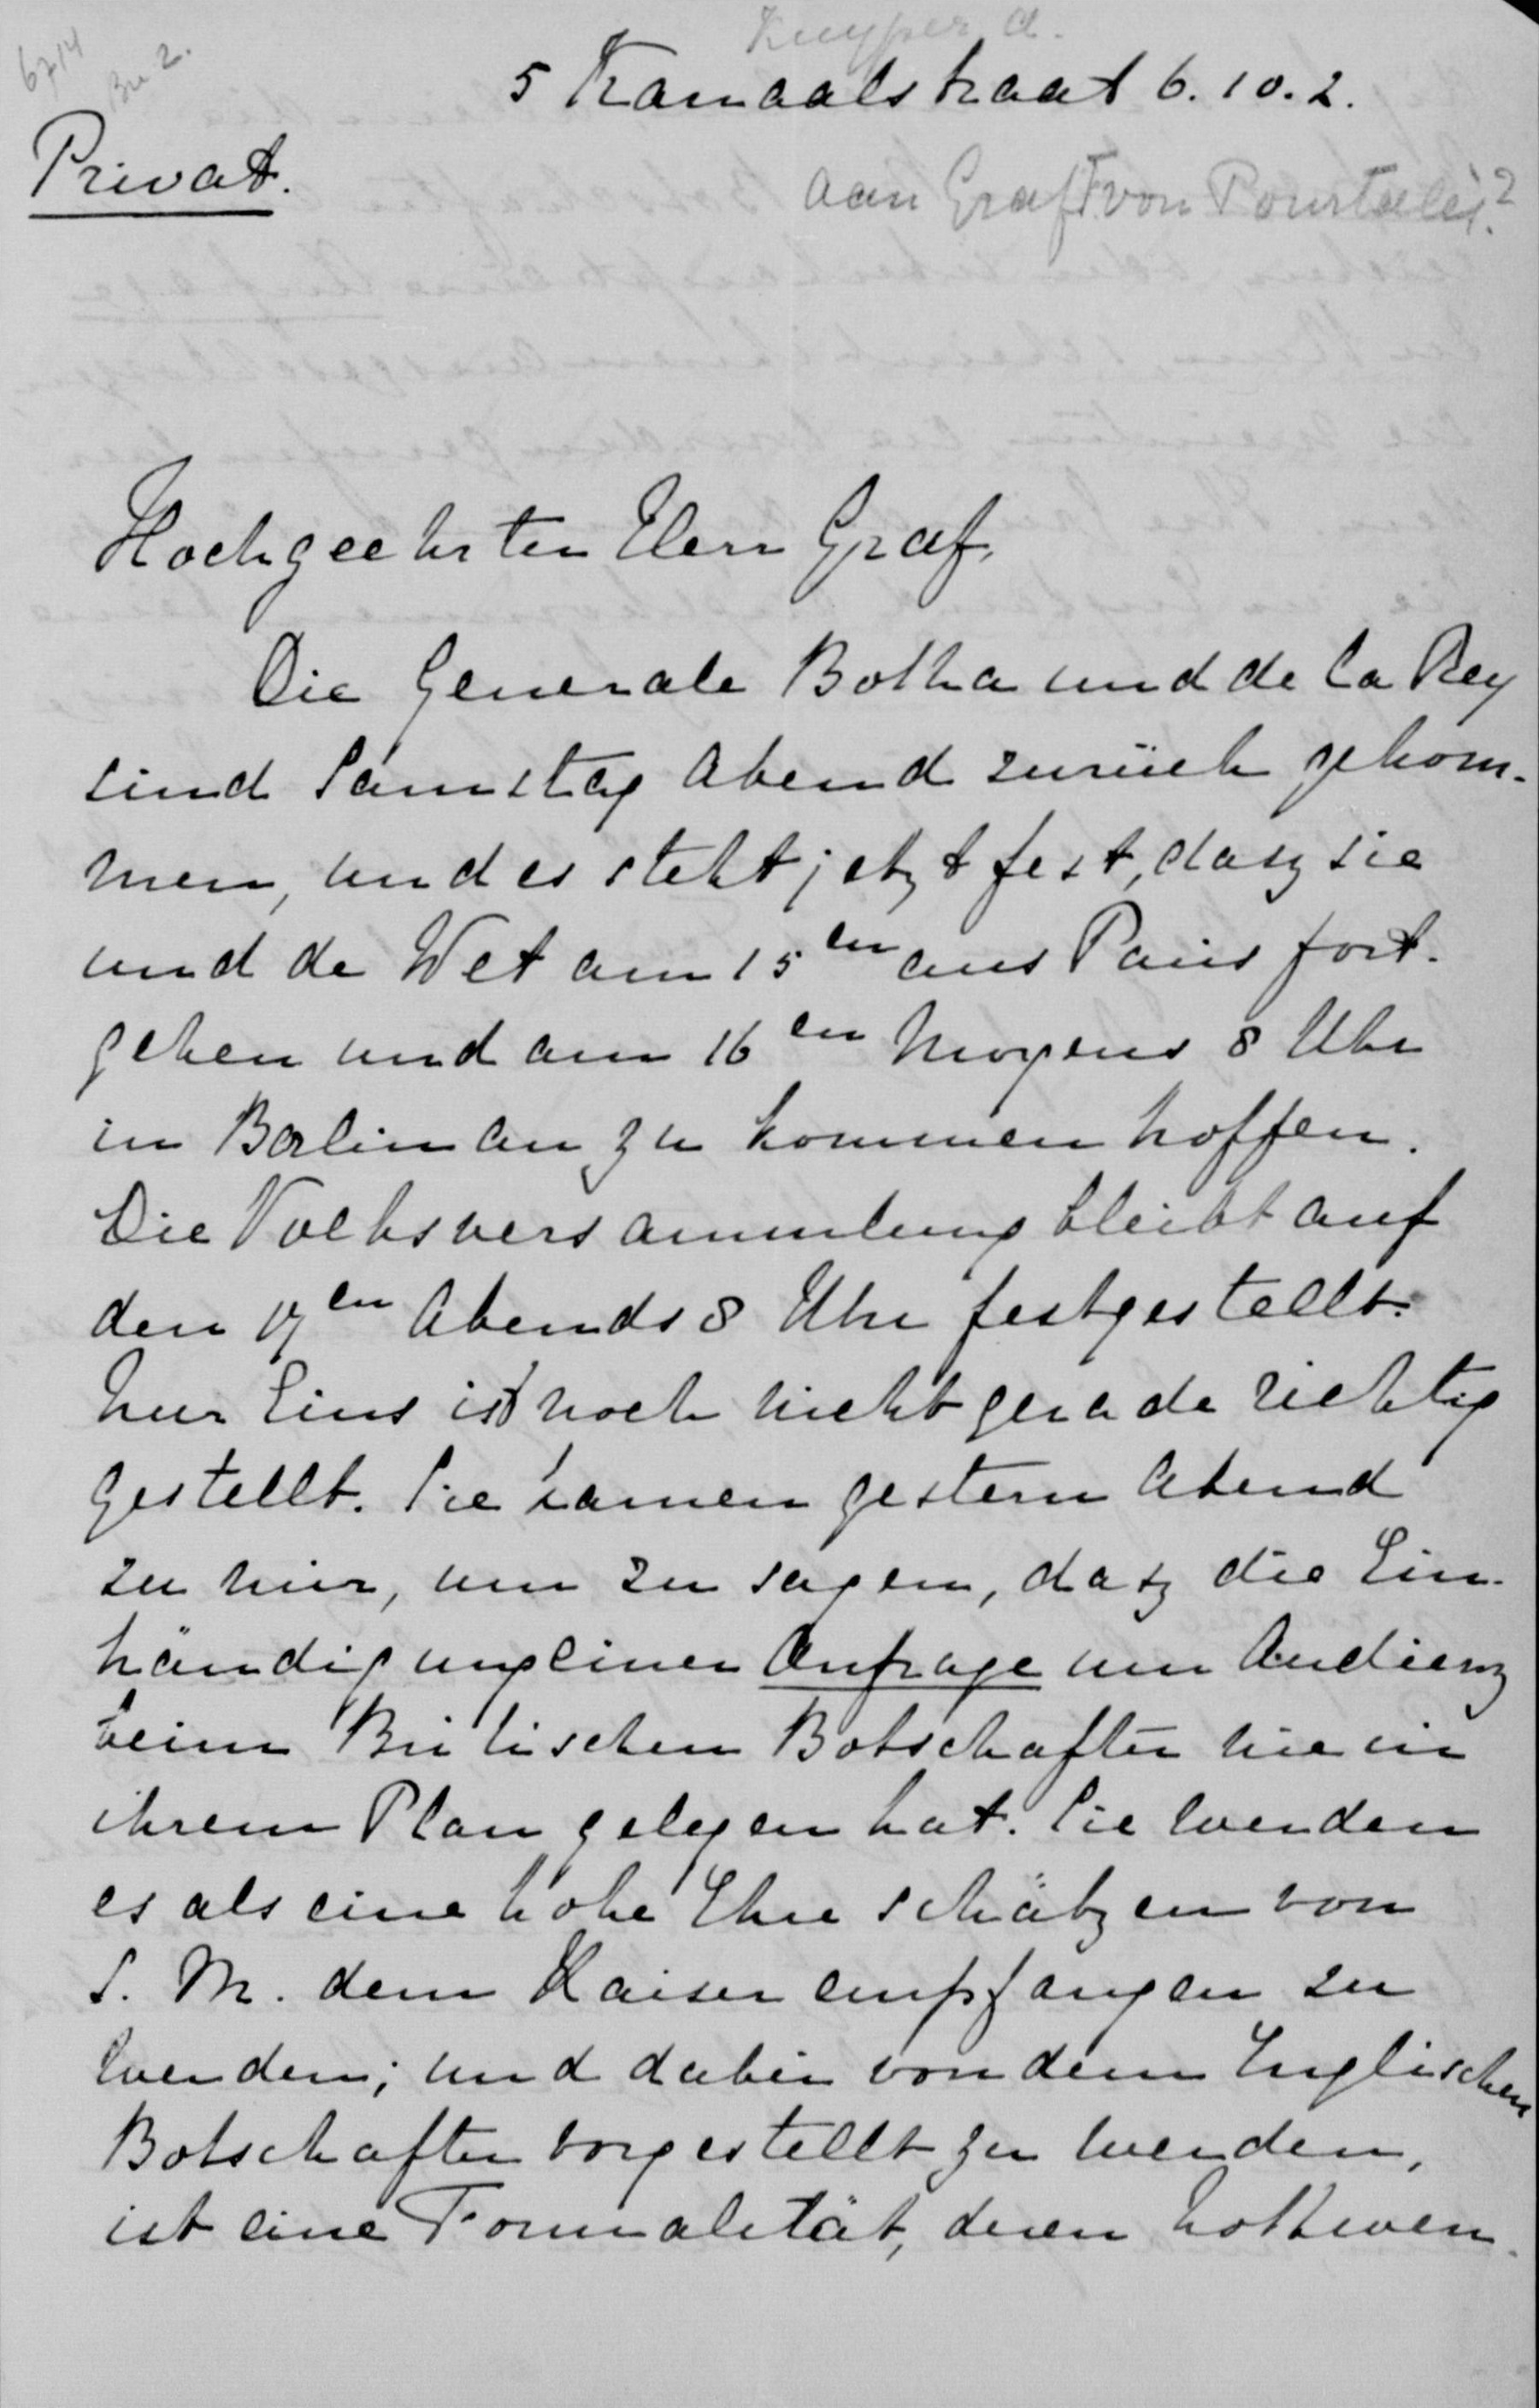 Kuyper A.
6714
Bu 2.
5 Kanaalstraat 6.10.2.
Privat.
aan Graf F. von Pourtalès?
Hochgeehrten Herr Graf,
Die Generale Botha und de la Rey
sind Samstag Abend zurück gekom-
men, und es steht jetzt fest, dasz sie
und de Wet am 15en aus Paris fort-
gehen und am 16en Morgens 8 Uhr
in Berlin an zu kommen hoffen.
Die Volksversammlung bleibt auf
den 17en Abends 8 Uhr festgestellt.
Nur Eins ist noch nicht gerade richtig
gestellt. Sie kamen gestern Abend
zu mir, um zu sagen, dasz die Ein-
händigung einer Anfrage um Audienz
beim Britischen Botschafter nie in
ihrem Plan gelegen hat. Sie werden
es als eine hohe Ehre schätzen von
S. M. dem Kaiser empfangen zu
werden; und dabei von dem Englischen
Botschafter vorgestellt zu werden,
ist eine Formalität, deren Nothwen-